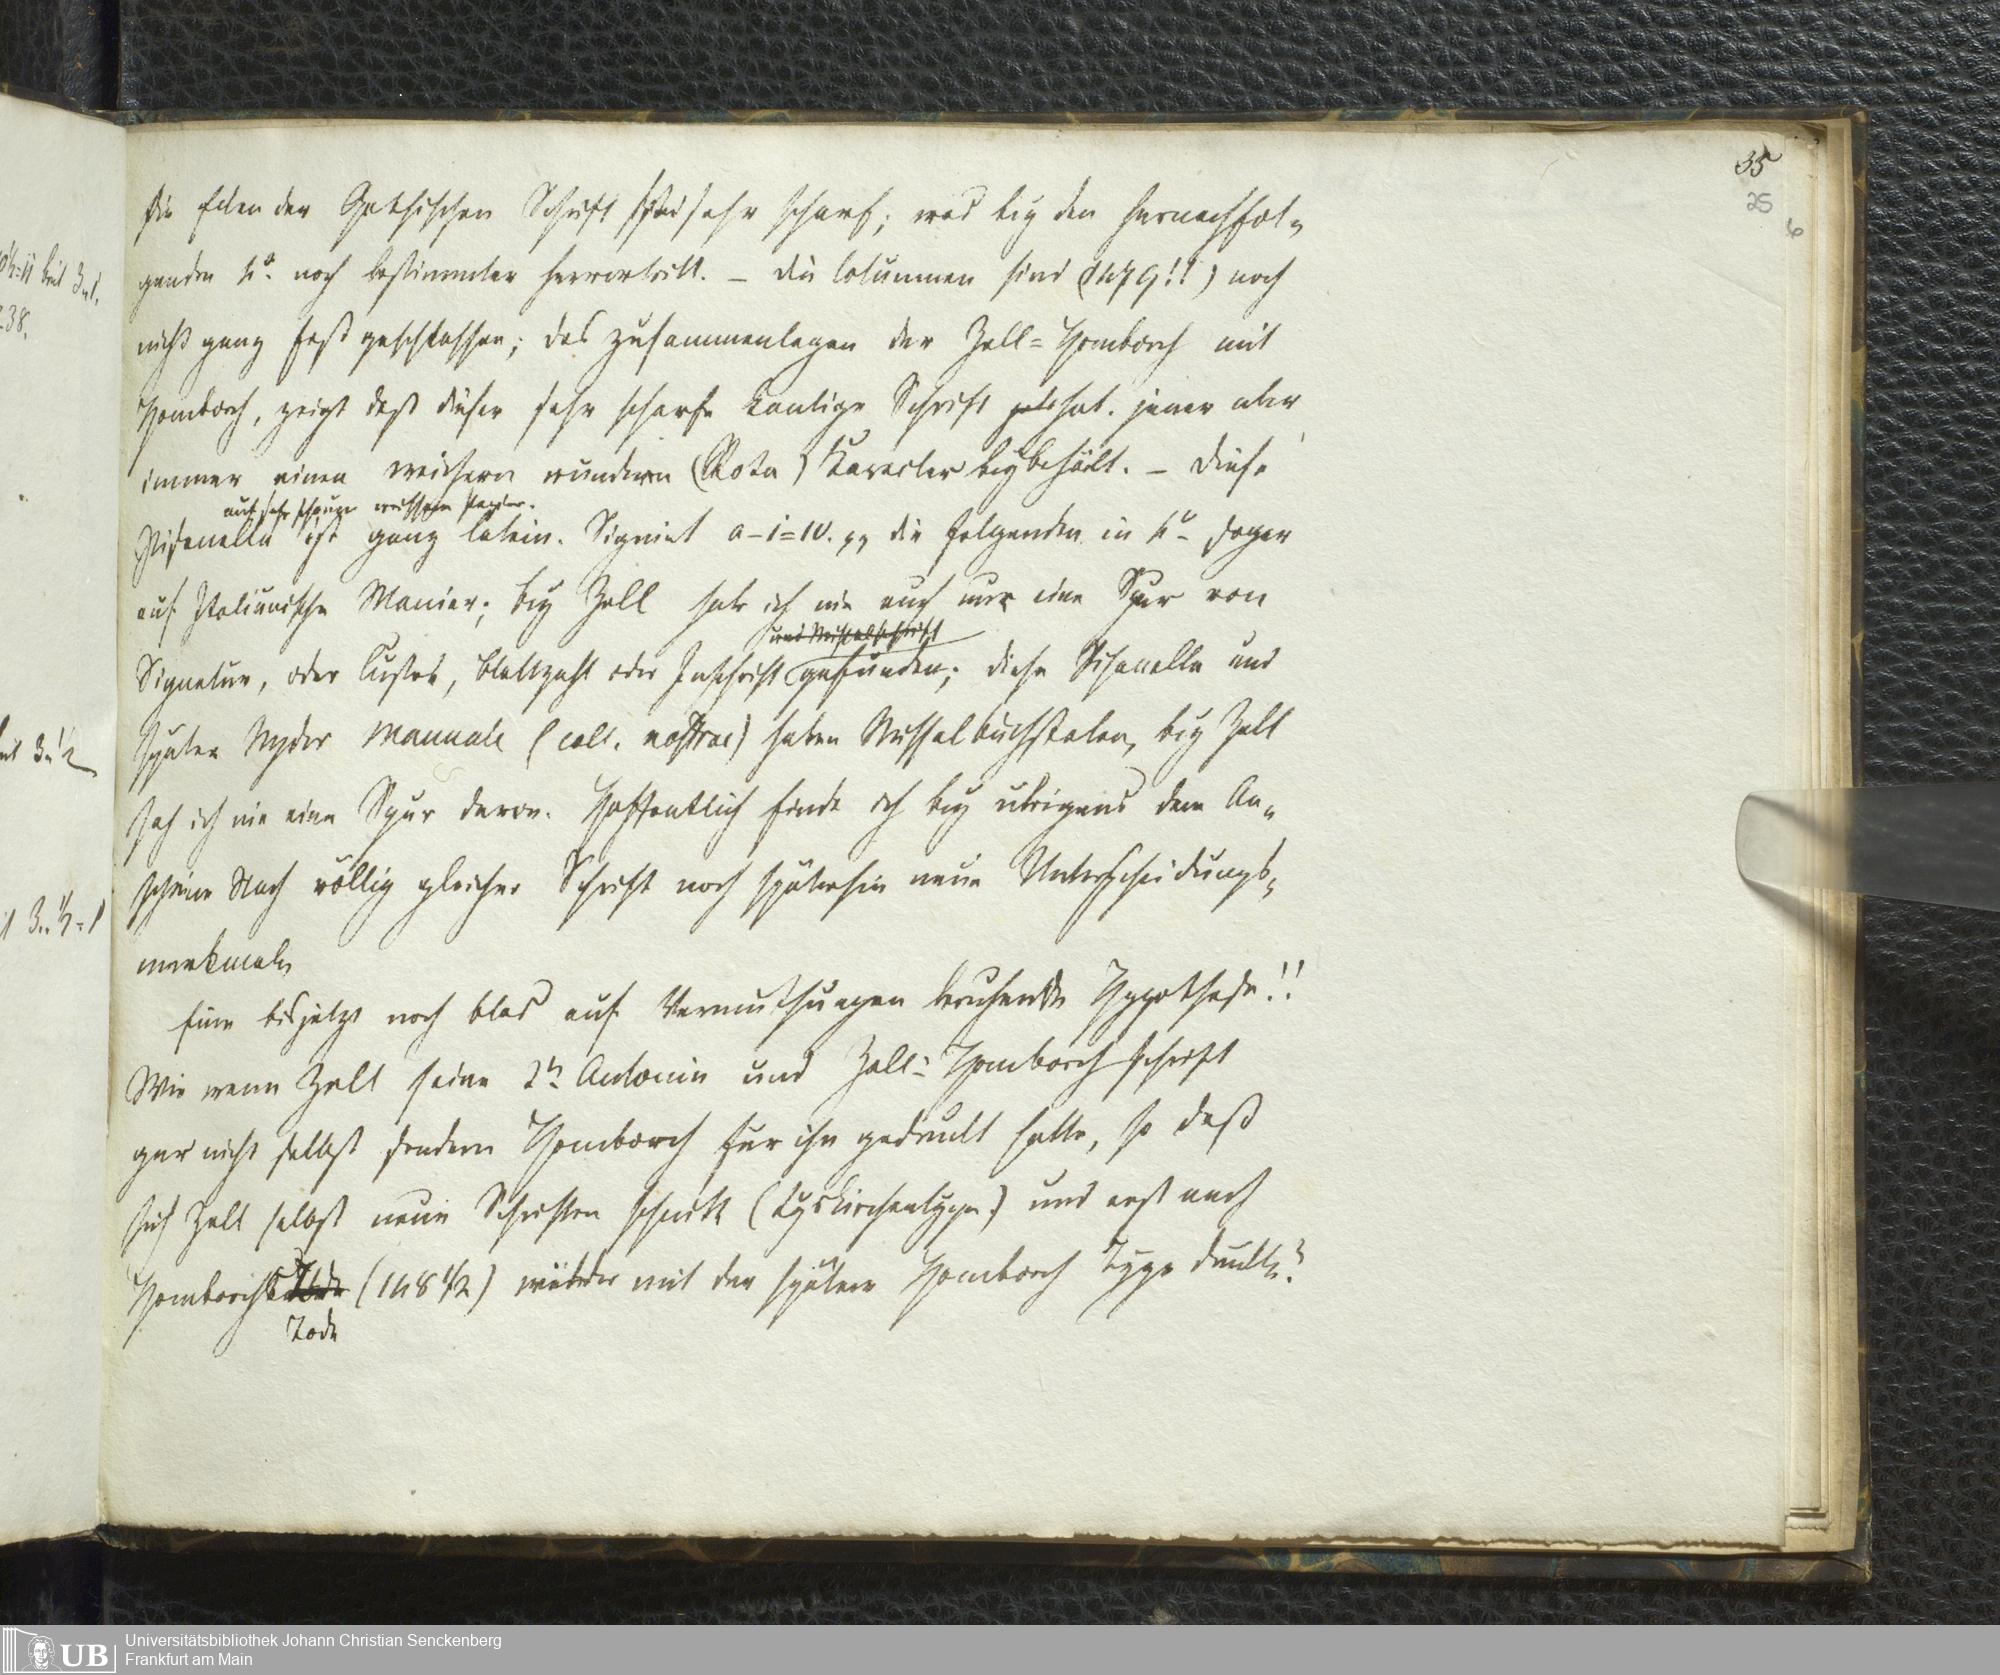 35
25
6
die Ecken der Gothischen Schrift sind sehr scharf; was bey den hernachfol-
genden No. noch bestimmter hervortritt. – die Columnen sind (1479!!) noch
nicht ganz fest geschlossen; das zusammenlegen der Zell-Homborch mit
Homborch, zeigt daß dieser sehr scharfe kantige Schrift hat. jener aber
immer einen weichern rundern (Rota) Karacter beybehält. – diese
auf sehr schönem weissem Papier.
Pisanella ist ganz latein. Signirt a–i=10. die folgenden in 4o
auf Italiänische Manier; bey Zell habe ich nie auch nur eine Spur von
und Missalschrift
Signatur, oder Custos, Blattzahl oder Inschrift gefunden; diese Pisanella und
später Nyder Manuale (coll. nostrae) haben Missalbuchstaben, bey Zell
sah ich nie eine Spur davon. Hoffentlich finde ich bey übrigens dem An-
scheine Nach völlig gleicher Schrift noch späterhin neue Unterscheidungs-
merkmale
Eine bis jetzt noch blos auf Vermuthungen beruhende Hypothese!!
Wie wenn Zell seine 2n Antonin und Zell-Homborch schrift
gar nicht selbst sondern Homborch für ihn gedruckt hatte, so daß
sich Zell selbst neue Schriften schnitt (Lyskirchentype) und erst nach
Homborchs (148 1/2) wieder mit der spätern Homborch Type druckte?
Tode
238.